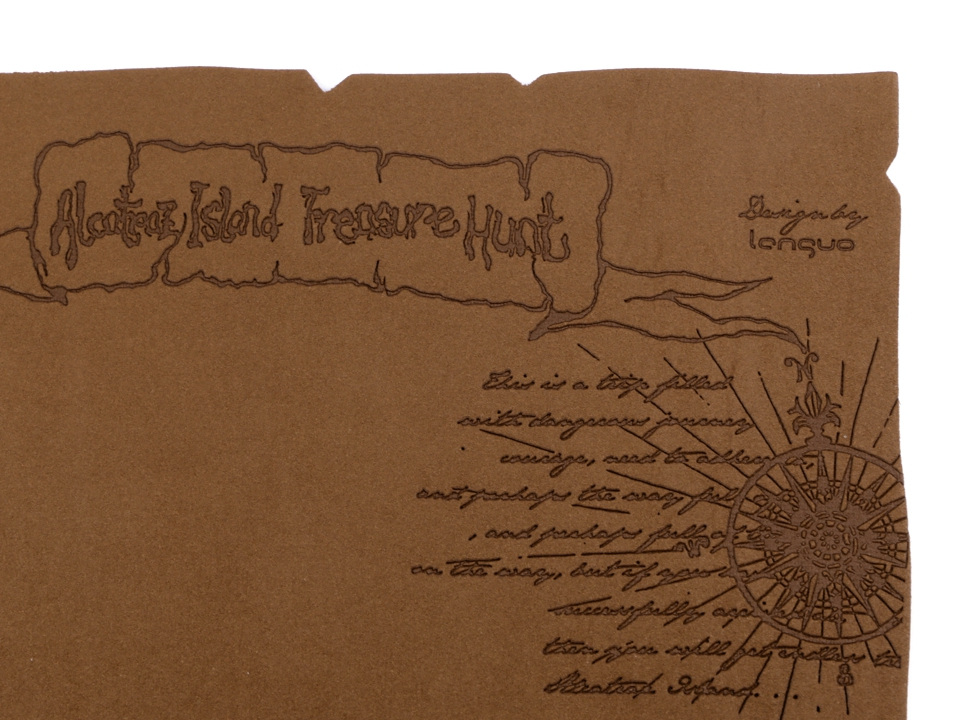 Alcatraz Island Treasure Hunt
Design by
lenquo
This is a trip filled
with dangerous journey
courage, need to adhere to,
and perhaps the way full
, and perhaps full of
on the way, but if you
successfully
then you will get endless to
Island...
N